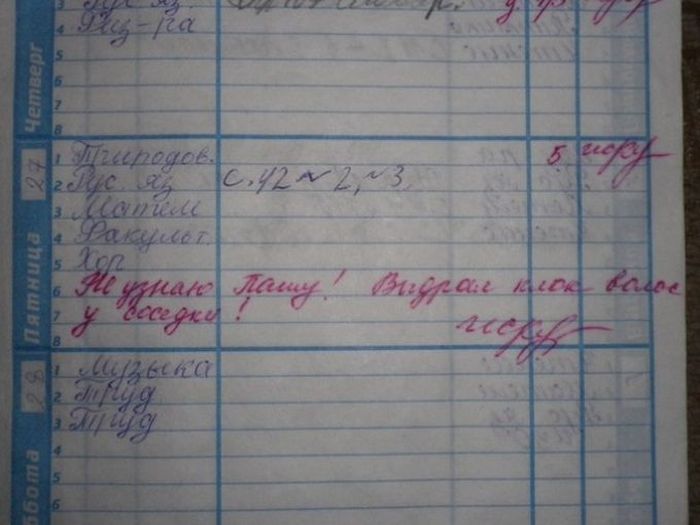 3 Рус. яз.
4 Физ-ра
5
6
7
8
Четверг
1 Природов. 5
2 Рус. яз с. 42 № 2, № 3
3 Матем
4 Факульт.
5 Хор
6 Не узнаю Пашу! Выдрал клок волос
7 у соседки!
8
27
Пятница
1 Музыка
2 Труд
3 Труд
4
5
6
28
ббота